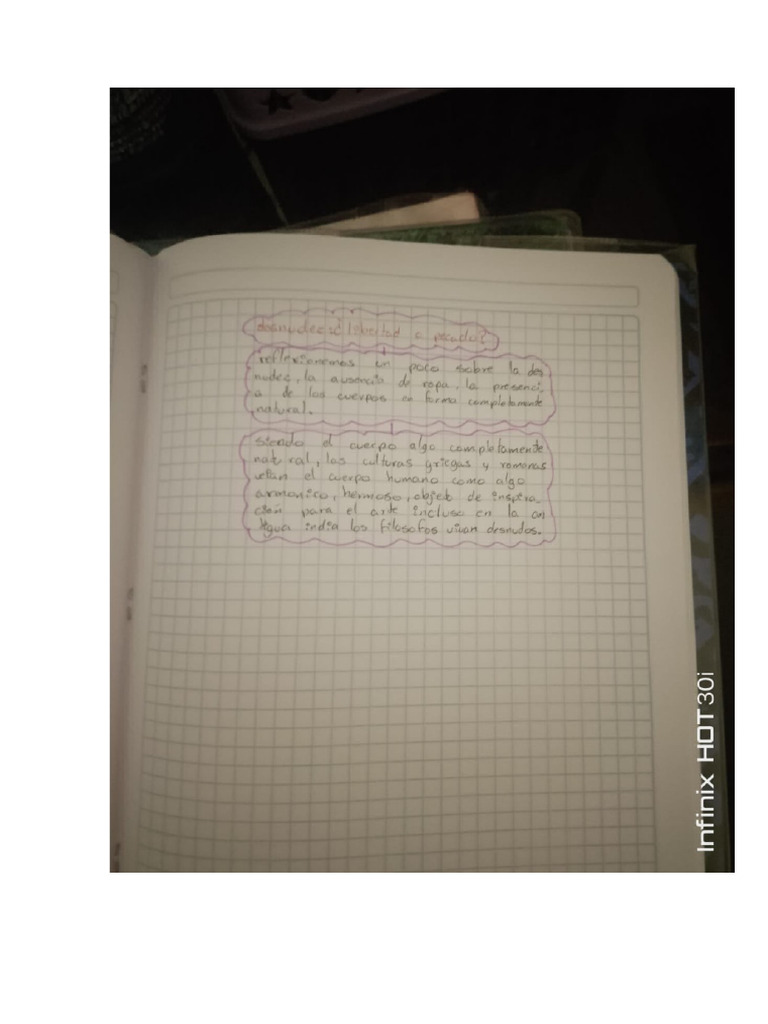 desnudez: ¿libertad o pecado?
reflexionemos un poco sobre la des
nudez, la ausencia de ropa, la presenci
a de los cuerpos en forma completamente
natural.
siendo el cuerpo algo completamente
natural, las culturas griegas y romanas
veían el cuerpo humano como algo
armonico, hermoso, objeto de inspira
ción para el arte incluso en la an
tigua india los filosofos vivan desnudos.
Infinix HOT 30i